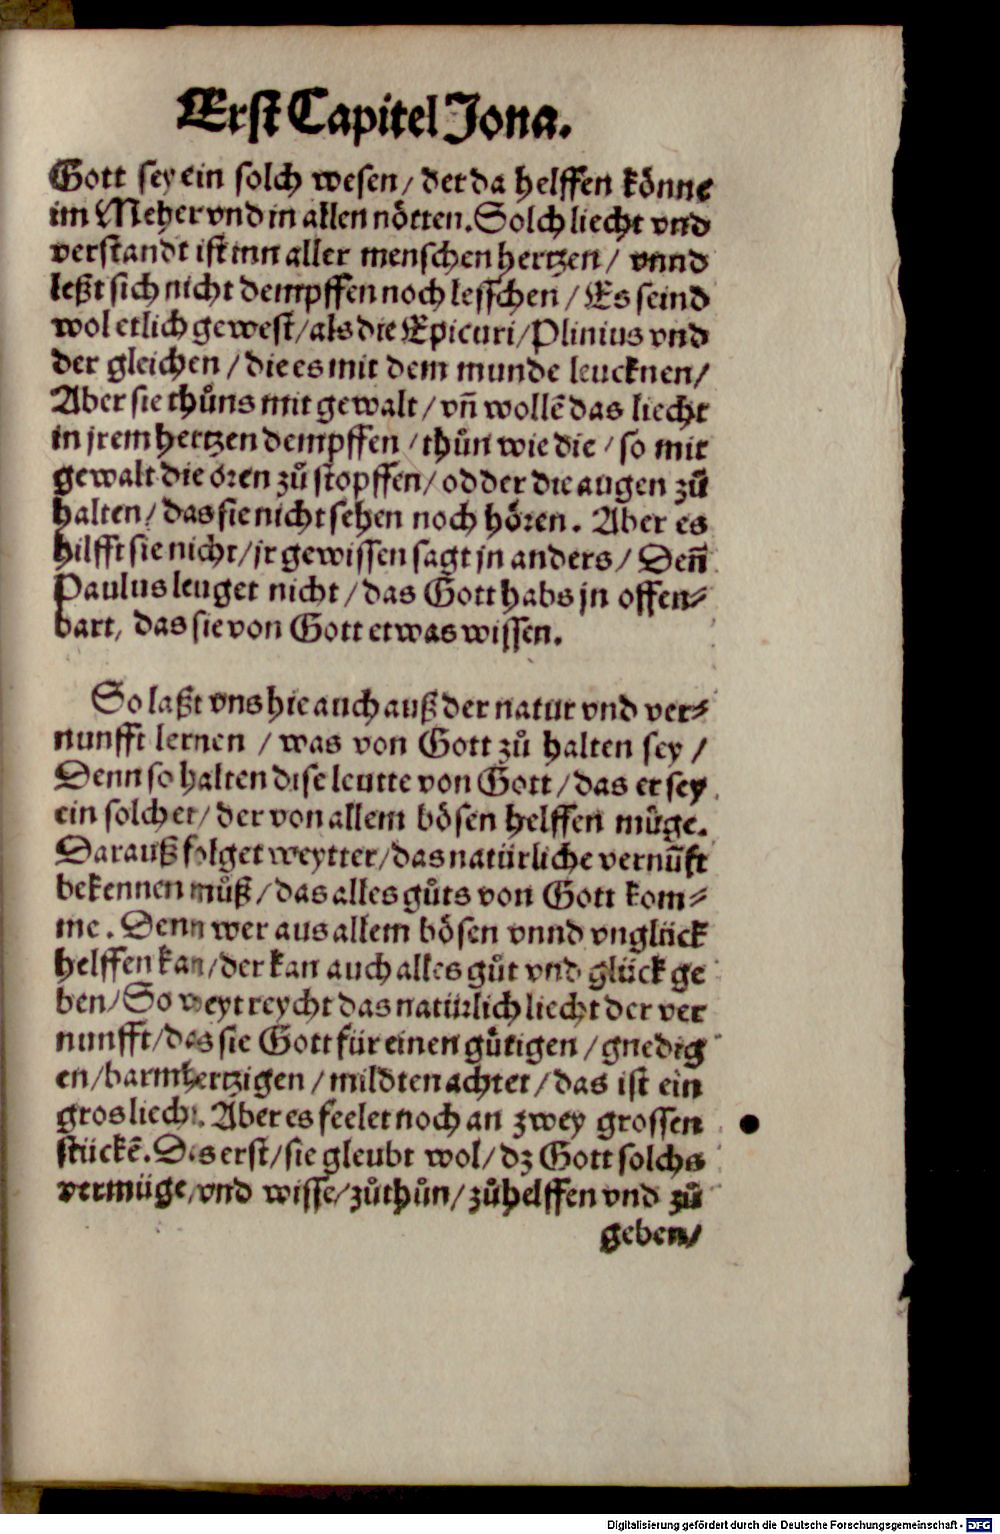 Erst Capitel Jona.
Gott sey ein solch wesen / der da helffen könne
im Meher vnd in allen nötten. Solch liecht vnd
verstandt ist inn aller menschen hertzen / vnnd
leßt sich nicht dempffen noch lesschen / Es seind
wol etlich gewest / als die Epicuri / Plinius vnd
der gleichen / die es mit dem munde leucknen /
Aber sie thůns mit gewalt / vn̄ wollē das liecht
in jrem hertzen dempffen / thůn wie die / so mit
gewalt die ören zů stopffen / odder die augen zů
halten / das sie nicht sehen noch hören. Aber es
hilfft sie nicht / jr gewissen sagt jn anders / Den̄
Paulus leuget nicht / das Gott habs jn offen⸗
bart, das sie von Gott etwas wissen.
So laßt vns hie auch auß der natur vnd ver⸗
nunfft lernen / was von Gott zů halten sey /
Denn so halten dise leutte von Gott / das er sey
ein solcher / der von allem bösen helffen müge.
Darauß folget weytter / das natürliche vernūft
bekennen můß / das alles gůts von Gott kom⸗
me. Denn wer aus allem bösen vnnd vnglück
helffen kan / der kan auch alles gůt vnd glück ge
ben / So weyt reycht das natürlich liecht der ver
nunfft / das sie Gott für einen gůtigen / gnedig
en / barmhertzigen / mildten achtet / das ist ein
gros liecht. Aber es feelet noch an zwey grossen
stückē. Das erst / sie gleubt wol / dz Gott solchs
vermüge / vnd wisse / zůthůn / zůhelffen vnd zů
geben /
Digitalisierung gefördert durch die Deutsche Forschungsgemeinschaft - DFG